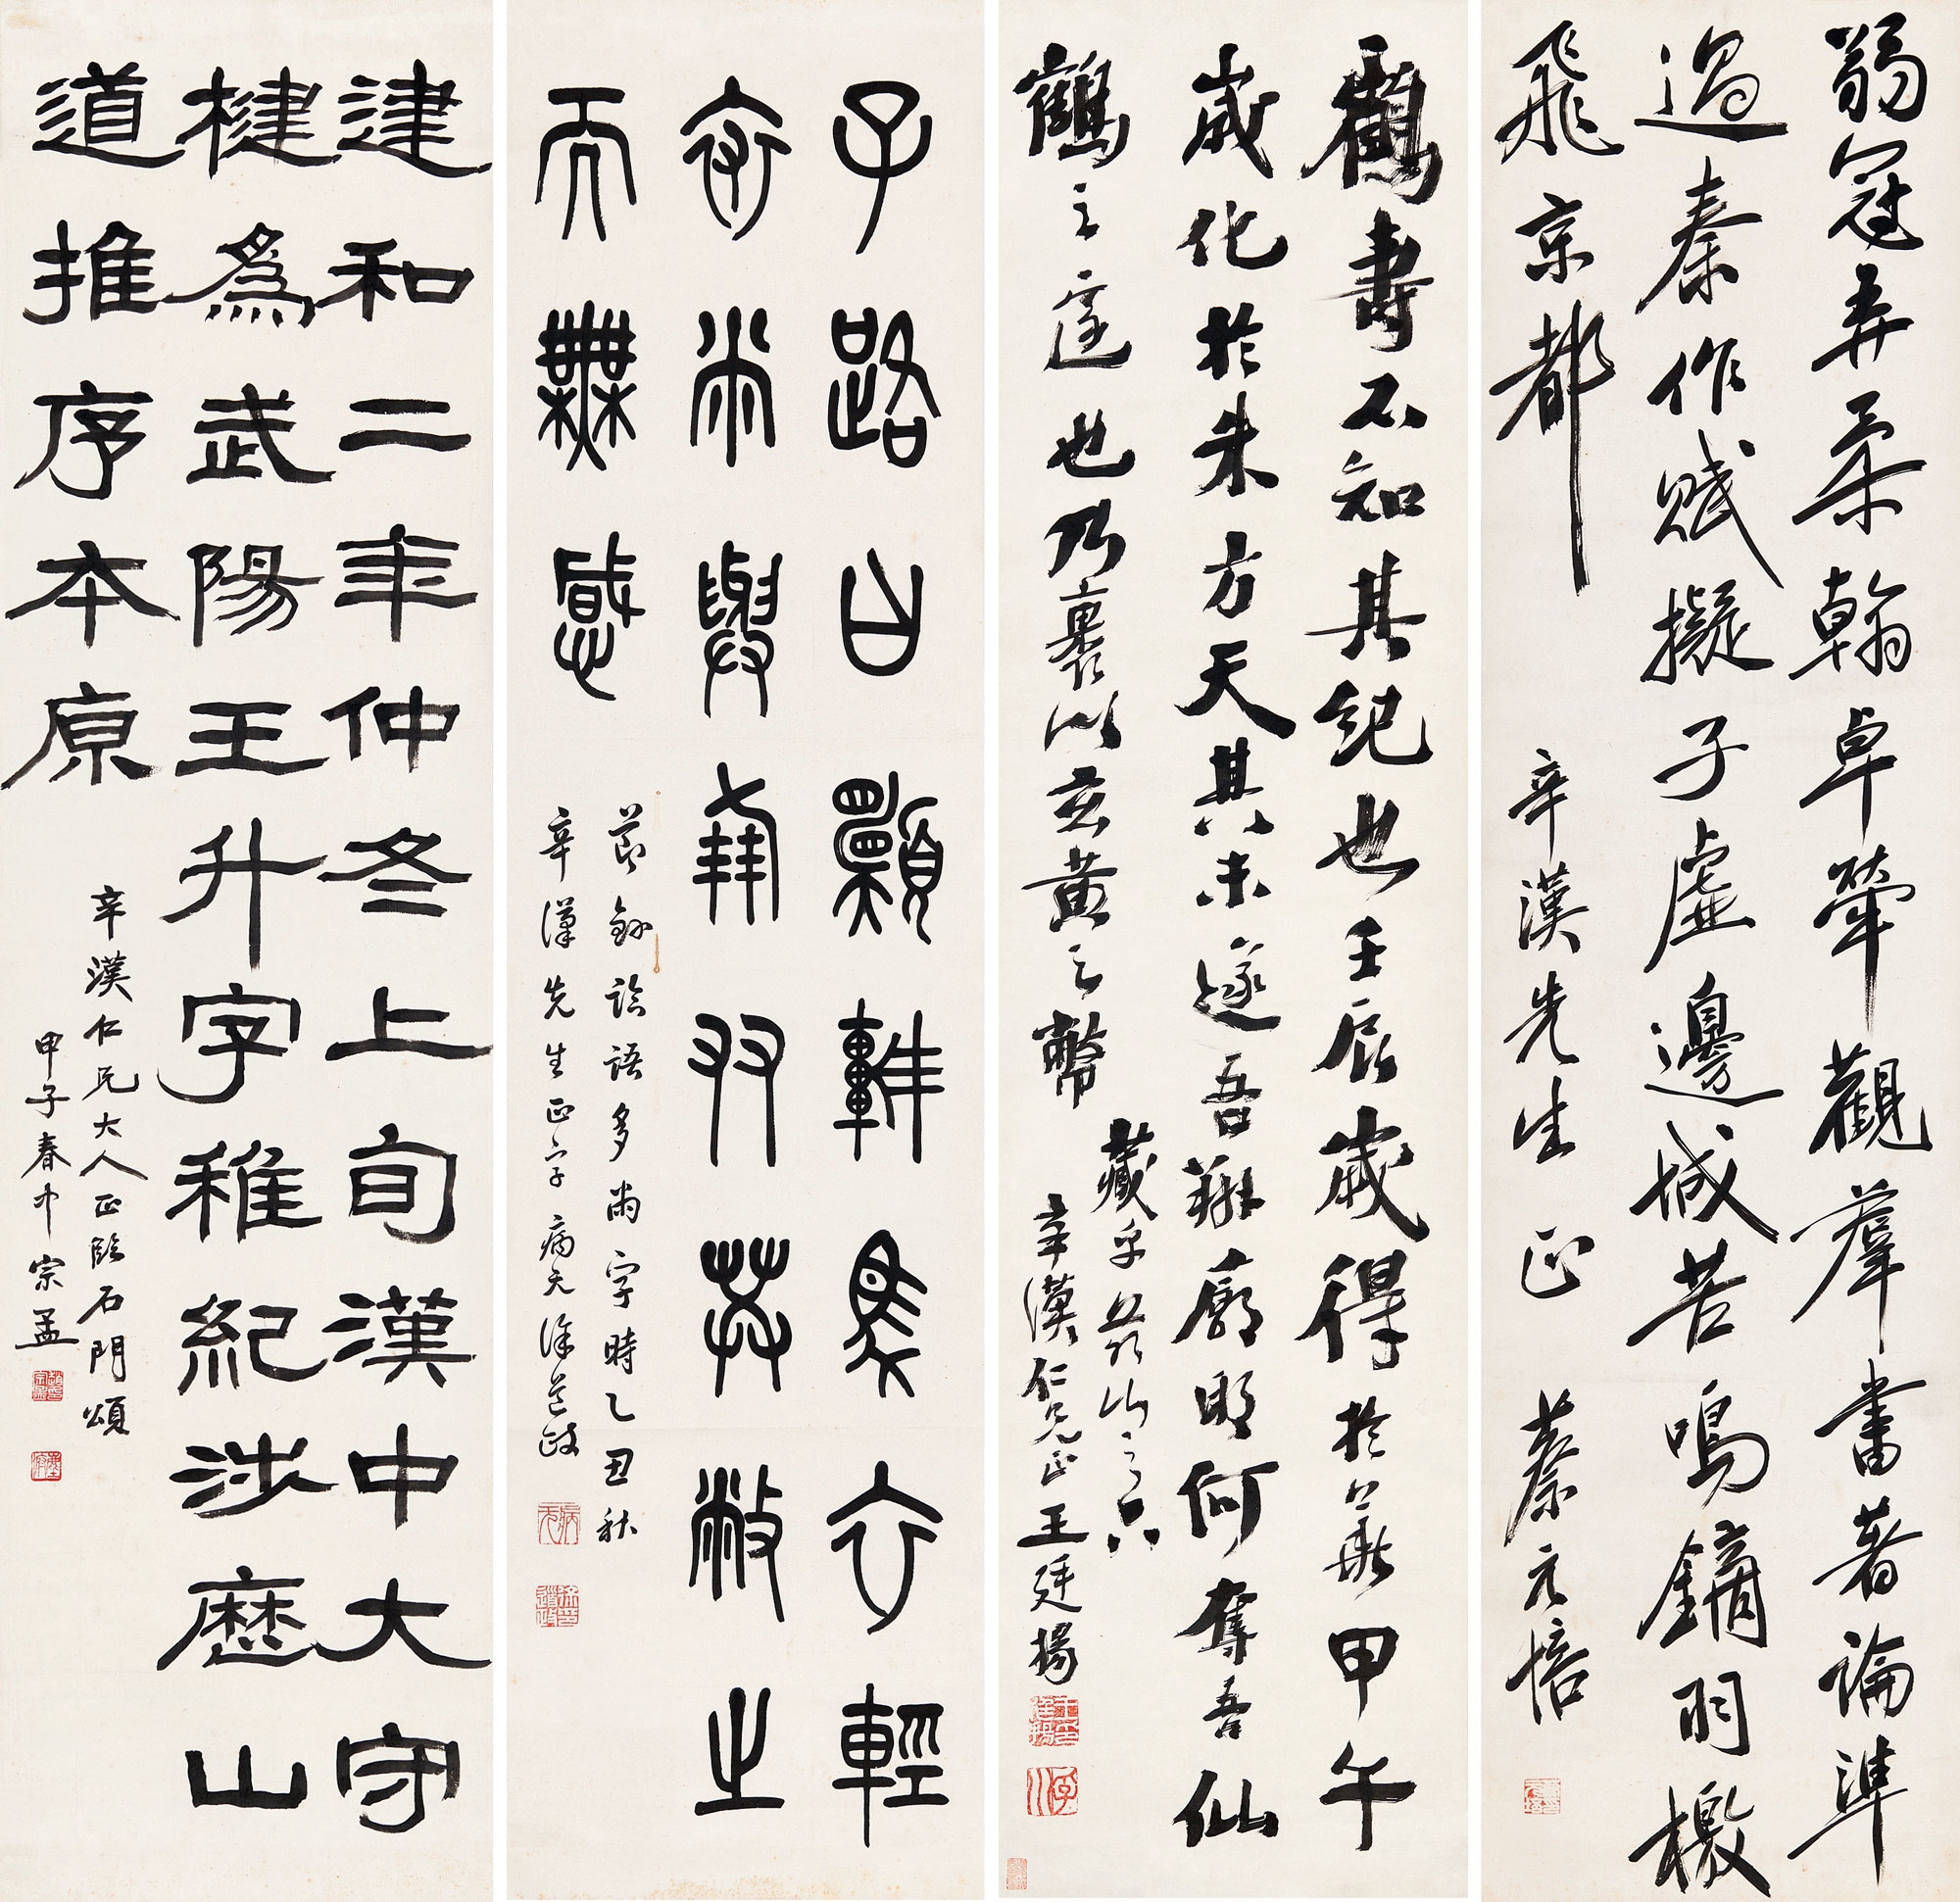 弱冠弄柔翰卓犖觀羣書著論準
過秦作賦擬子虛邊城苦鳴鏑羽檄
飛京都
辛漢先生正 蔡元培
鶴壽不知其紀也壬辰歲得於華甲午
歲化於朱方天其未遂吾翔廓耶何奪吾仙
鶴之遽也乃裹以玄黃之幣
藏乎茲山之下
辛漢仁兄正王廷揚
子路曰願車馬衣輕
裘與朋友共敝之
而無憾
節鈔論語多字時乙丑秋
辛漢先生正字 病无徐道政
建和二年仲冬上旬漢中大守
楗為武陽王升字稚紀涉歷山
道推序本原
辛漢仁兄大人正臨石門頌
甲子春中宗孟